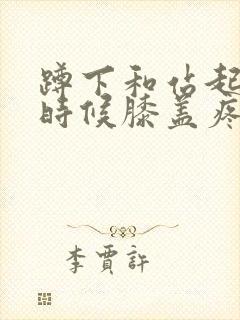 蹲下和佔起
時候膝盖疼
李賈許